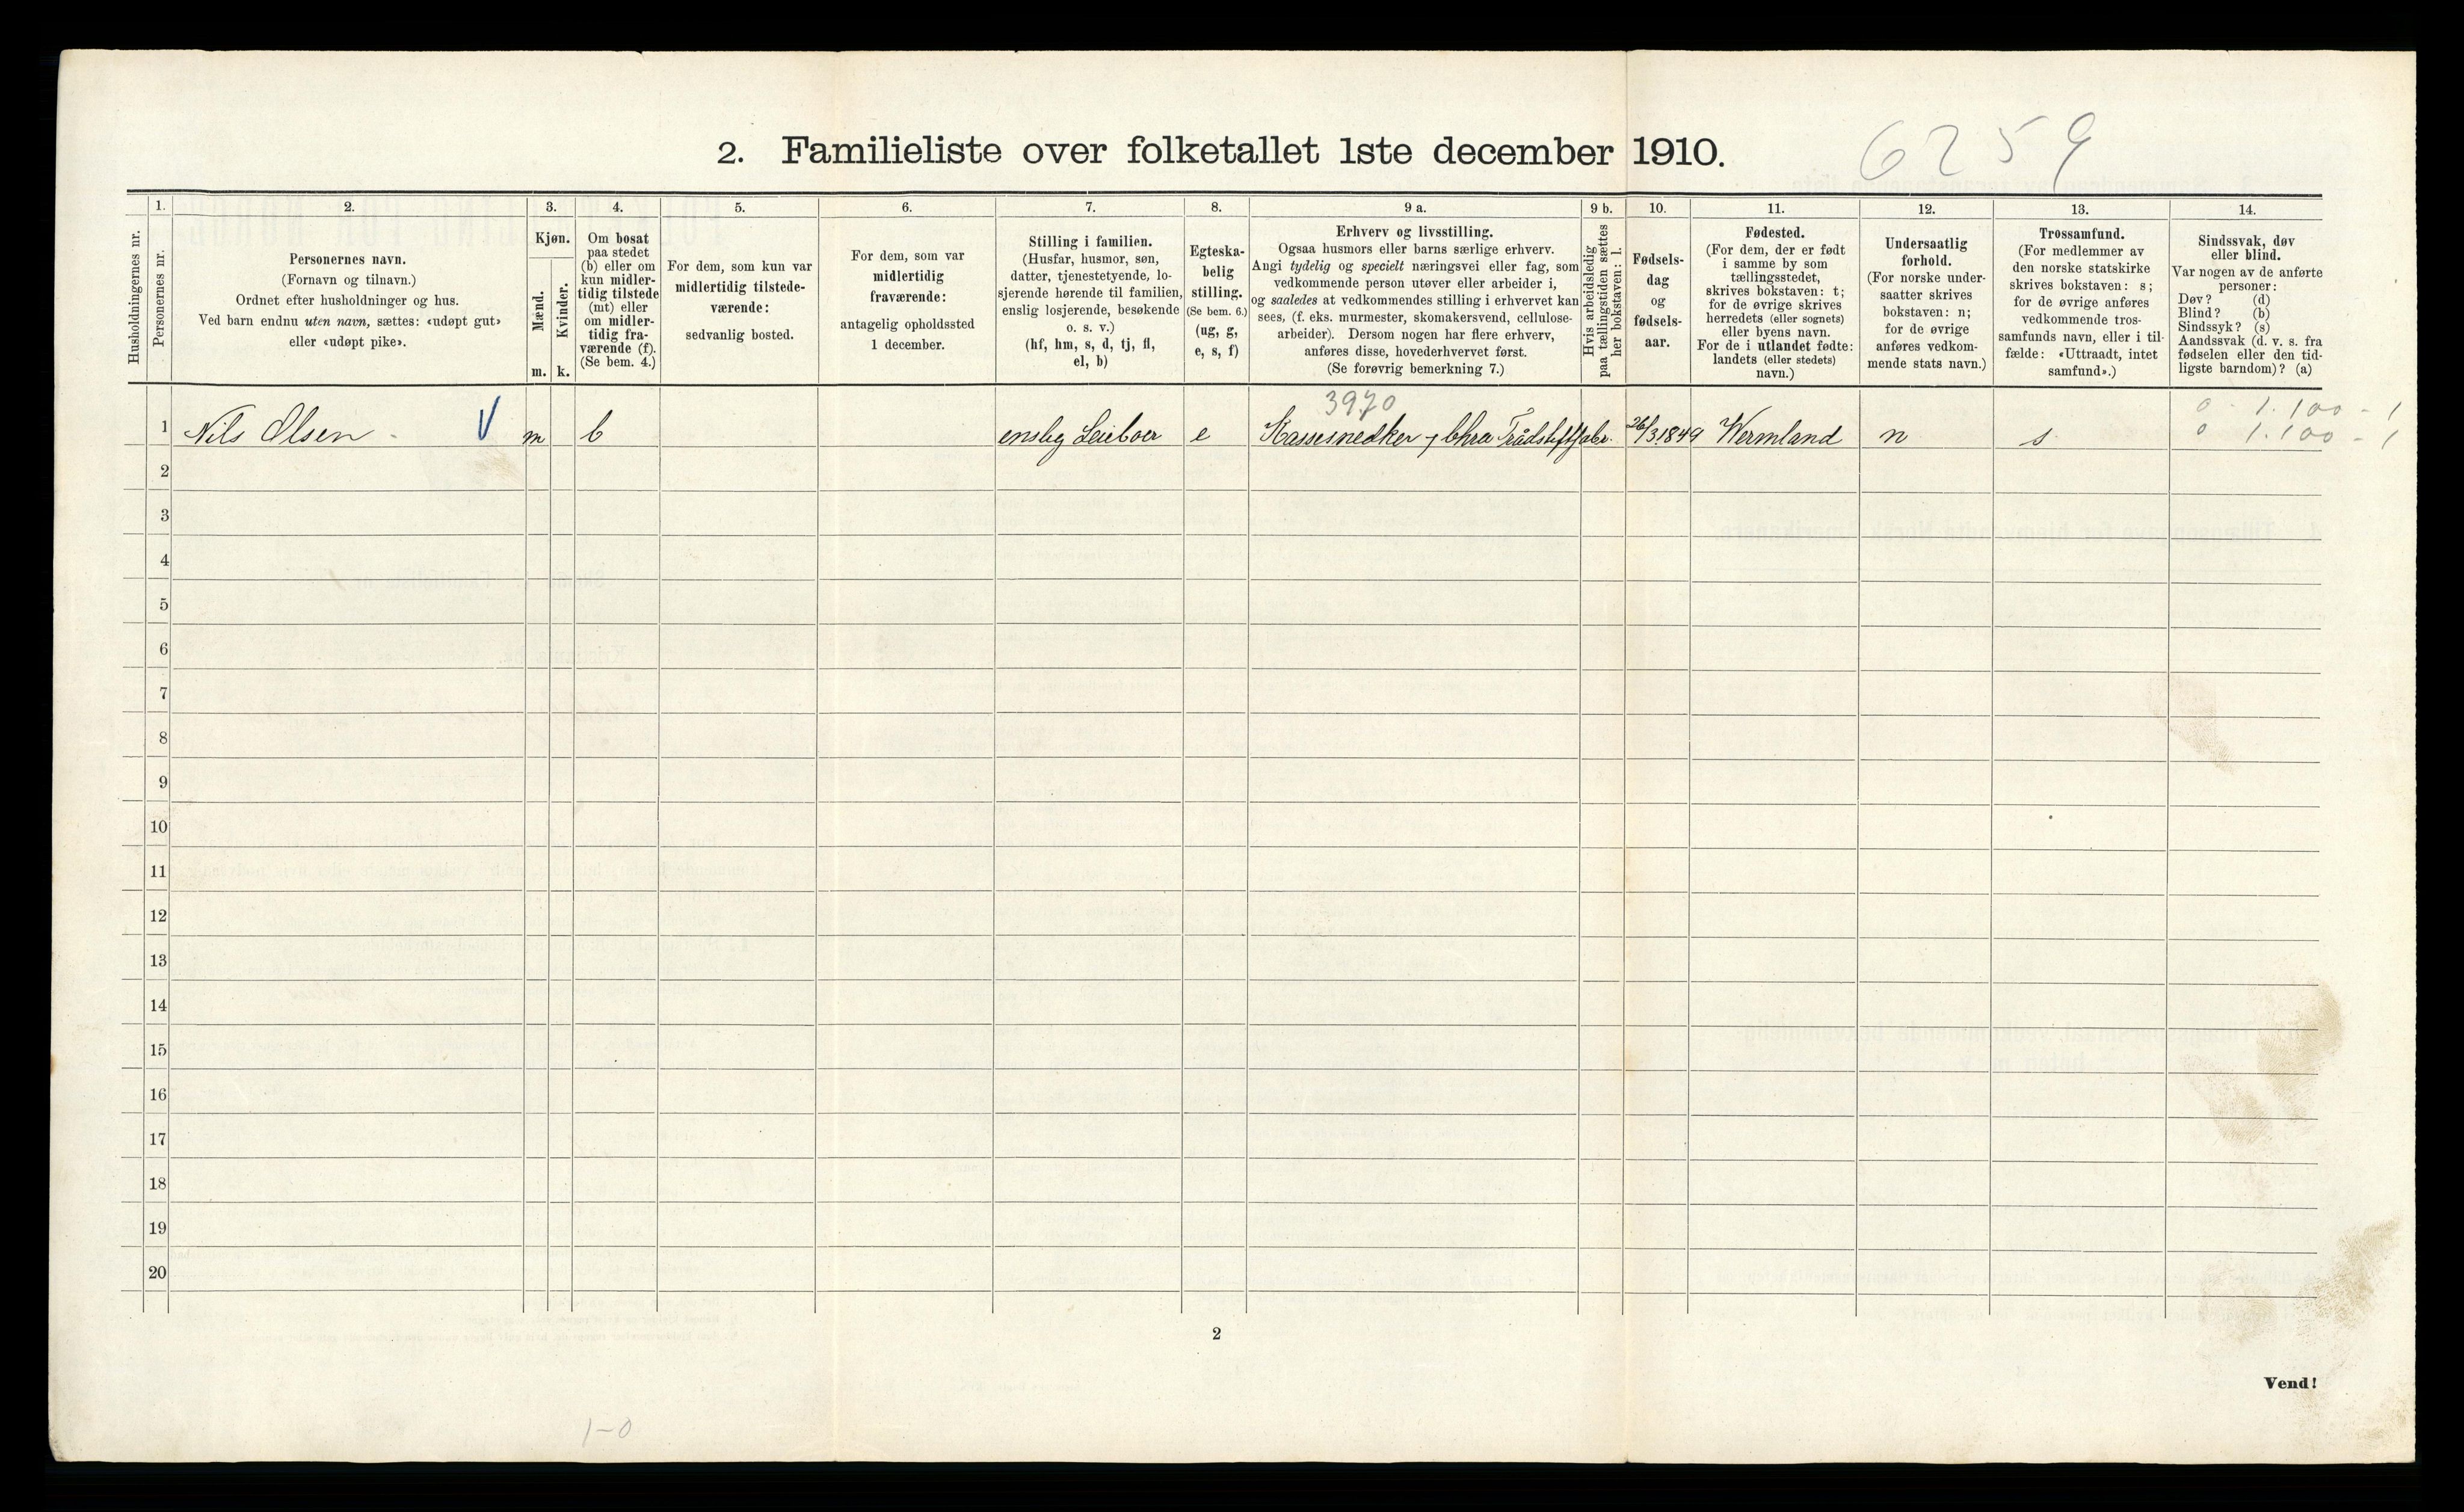 6259
2. Familieliste over folketallet 1ste december 1910.
Husholdningernes nr.
1.
Personernes nr.
2.
Personernes navn.
(Fornavn og tilnavn.)
Ordnet efter husholdninger og hus.
Ved barn endnu uten navn, sættes: «udøpt gut»
eller «udøpt pike».
3.
Kjøn.
Mænd.
Kvinder.
m. k.
4.
Om bosat
paa stedet
(b) eller om
kun midler-
tidig tilstede
(mt) eller
om midler-
tidig fra-
værende (f).
(Se bem. 4.)
5.
For dem, som kun var
midlertidig tilstede-
værende:
sedvanlig bosted.
6.
For dem, som var
midlertidig
fraværende:
antagelig opholdssted
1 december.
7.
Stilling i familien.
(Husfar, husmor, søn,
datter, tjenestetyende, lo-
sjerende hørende til familien,
enslig losjerende, besøkende
o. s. v.)
(hf, hm, s, d, tj, fl,
el, b)
8.
Egteska-
belig
stilling.
(Se bem. 6.)
(ug, g,
e, s, f)
9 a.
Erhverv og livsstilling.
Ogsaa husmors eller barns særlige erhverv.
Angi tydelig og specielt næringsvei eller fag, som
vedkommende person utøver eller arbeider i,
og saaledes at vedkommendes stilling i erhvervet kan
sees, (f. eks. murmester, skomakersvend, cellulose-
arbeider). Dersom nogen har flere erhverv,
anføres disse, hovederhvervet først.
(Se forøvrig bemerkning 7.)
9 b.
Hvis arbeidsledig
paa tællingstiden sættes
her bokstaven: l.
10.
Fødsels-
dag
og
fødsels-
aar.
11.
Fødested.
(For dem, der er født
i samme by som
tællingsstedet,
skrives bokstaven: t;
for de øvrige skrives
herredets (eller sognets)
eller byens navn.
For de i utlandet fødte:
landets (eller stedets)
navn.)
12.
Undersaatlig
forhold.
(For norske under-
saatter skrives
bokstaven: n;
for de øvrige
anføres vedkom-
mende stats navn.)
13.
Trossamfund.
(For medlemmer av
den norske statskirke
skrives bokstaven: s;
for de øvrige anføres
vedkommende tros-
samfunds navn, eller i til-
fælde: «Uttraadt, intet
samfund».)
14.
Sindssvak, døv
eller blind.
Var nogen av de anførte
personer:
Døv? (d)
Blind? (b)
Sindssyk? (s)
Aandssvak (d. v. s. fra
fødselen eller den tid-
ligste barndom)? (a)
3970
0 - 1.100 - 1
1 Nils Olsen - V m b enslig Leieboer e Kassesnedker, Chra Trådstiftfabr. 26/3.1849 Wermland n s 0 1.100 - 1
2
3
4
5
6
7
8
9
10
11
12
13
14
15
16
17
18
19
20
2
Vend!
1-0